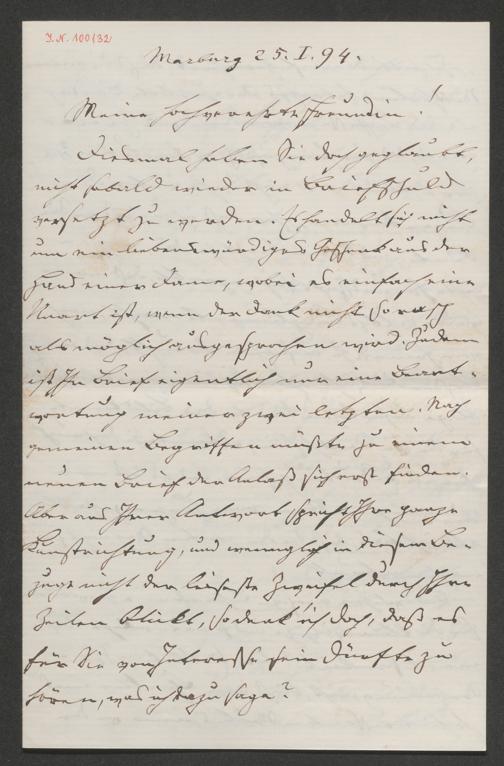 I.N. 100132
Marburg 25.I.94.
Meine hochverehrte Freundin!
Diesmal haben Sie doch geglaubt,
nicht sobald wieder in Briefschuld
versetzt zu werden. Es handelt sich nicht
um ein liebenswürdiges Geschenk aus der
Hand einer Dame, wobei es einfach eine
Unart ist, wenn der Dank nicht so rasch
als möglich ausgesprochen wird. Zudem
ist Ihr Brief eigentlich nur eine Beant-
wortung meiner zwei letzten. Nach
gemeinen Begriffen müßte zu einem
neuen Brief der Anlaß sich erst finden.
Aber aus Ihrer Antwort spricht Ihre ganze
Kunstrichtung, und wenngleich in diesem Be-
zuge nicht der leiseste Zweifel durch Ihre
Zeilen blickt, so denk' ich doch, daß es
für Sie vom Interesse sein dürfte zu
hören, was ich dazu sage?